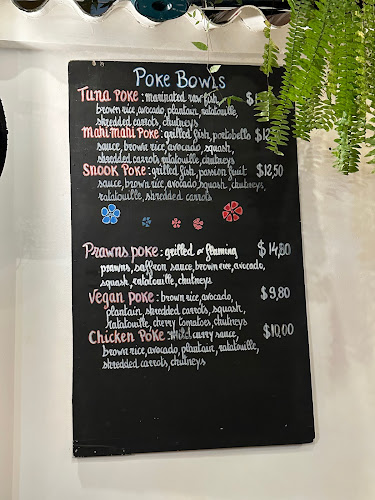 Poke Bowls
Tuna Poke: marinated raw fish, $
brown rice, avocado, plantain, ratatouille,
shredded carrots, chutneys
Mahi Mahi Poke: grilled fish, portobello $12
sauce, brown rice, avocado, squash,
shredded carrots, ratatouille, chutneys
Snook Poke: grilled fish, passion fruit $12,50
sauce, brown rice, avocado, squash, chutneys,
ratatouille, shredded carrots
Prawns poke: grilled or flaming $14,80
prawns, saffron sauce, brown rice, avocado,
squash, ratatouille, chutneys
Vegan poke: brown rice, avocado, $9,80
plantain, shredded carrots, squash,
ratatouille, cherry tomatoes, chutneys
Chicken Poke: Mild curry sauce, $10,00
brown rice, avocado, plantain, ratatouille,
shredded carrots, chutneys